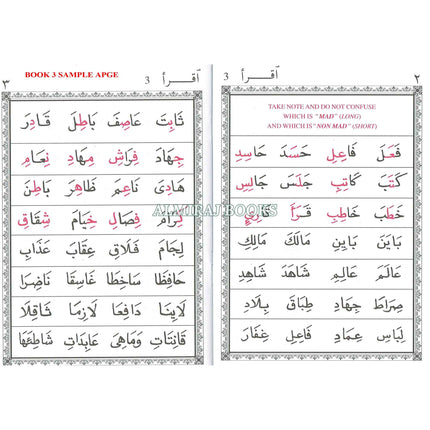 ٢ اقرأ 3
TAKE NOTE AND DO NOT CONFUSE
WHICH IS "MAD" (LONG)
AND WHICH IS "NON MAD" (SHORT)
فَعَلَ فَاعِلِ حَسَدَ حَاسِدِ
كَتَبَ كَاتِبِ جَلَسَ جَالِسِ
خَطَبَ خَاطِبِ قَرَأَ قَارِئِ
بَايَنَ بَايِنِ مَالَكَ مَالِكِ
عَالَمَ عَالِمِ شَاهَدَ شَاهِدِ
صِرَاطَ جِهَادِ طِبَاقَ بِلَادِ
لِبَاسِ عِمَادِ فَاعِلِ غِفَارَ
BOOK 3 SAMPLE APGE
اقرأ 3 ٣
ثَابِتَ عَاصِفَ بَاطِلَ قَادِرَ
جِهَادَ فِرَاشِ مِهَادِ نِعَامِ
هَادِىَ نَاعِمَ ظَاهِرَ بَاطِنَ
فِصَالِ خِيَامَ شِقَاقِ
لِجَامَ فَلَاقِ عِقَابَ عَذَابِ
حَافِظَا سَاخِطَا غَاسِقَا نَاضِرَا
دَافِعَا لَازِمَا شَاقِلَا
قَانِتَاتِ وَمَاهِىَ عَابِدَاتِ شَاطِئُهَا
ALMIRAJ BOOKS